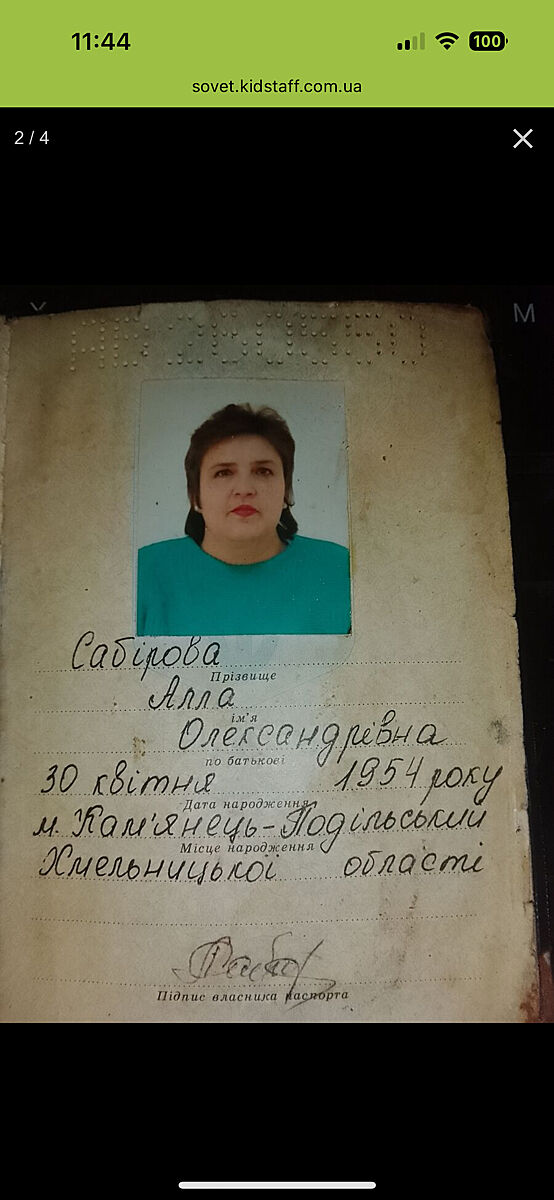 11:44
100
sovet.kidstaff.com.ua
2 / 4
М
Сабірова
Прізвище
Алла
ім'я
Олександрівна
по батькові
30 квітня 1954 року
Дата народження
м. Кам'янець-Подільський
Місце народження
Хмельницької області
Підпис власника паспорта